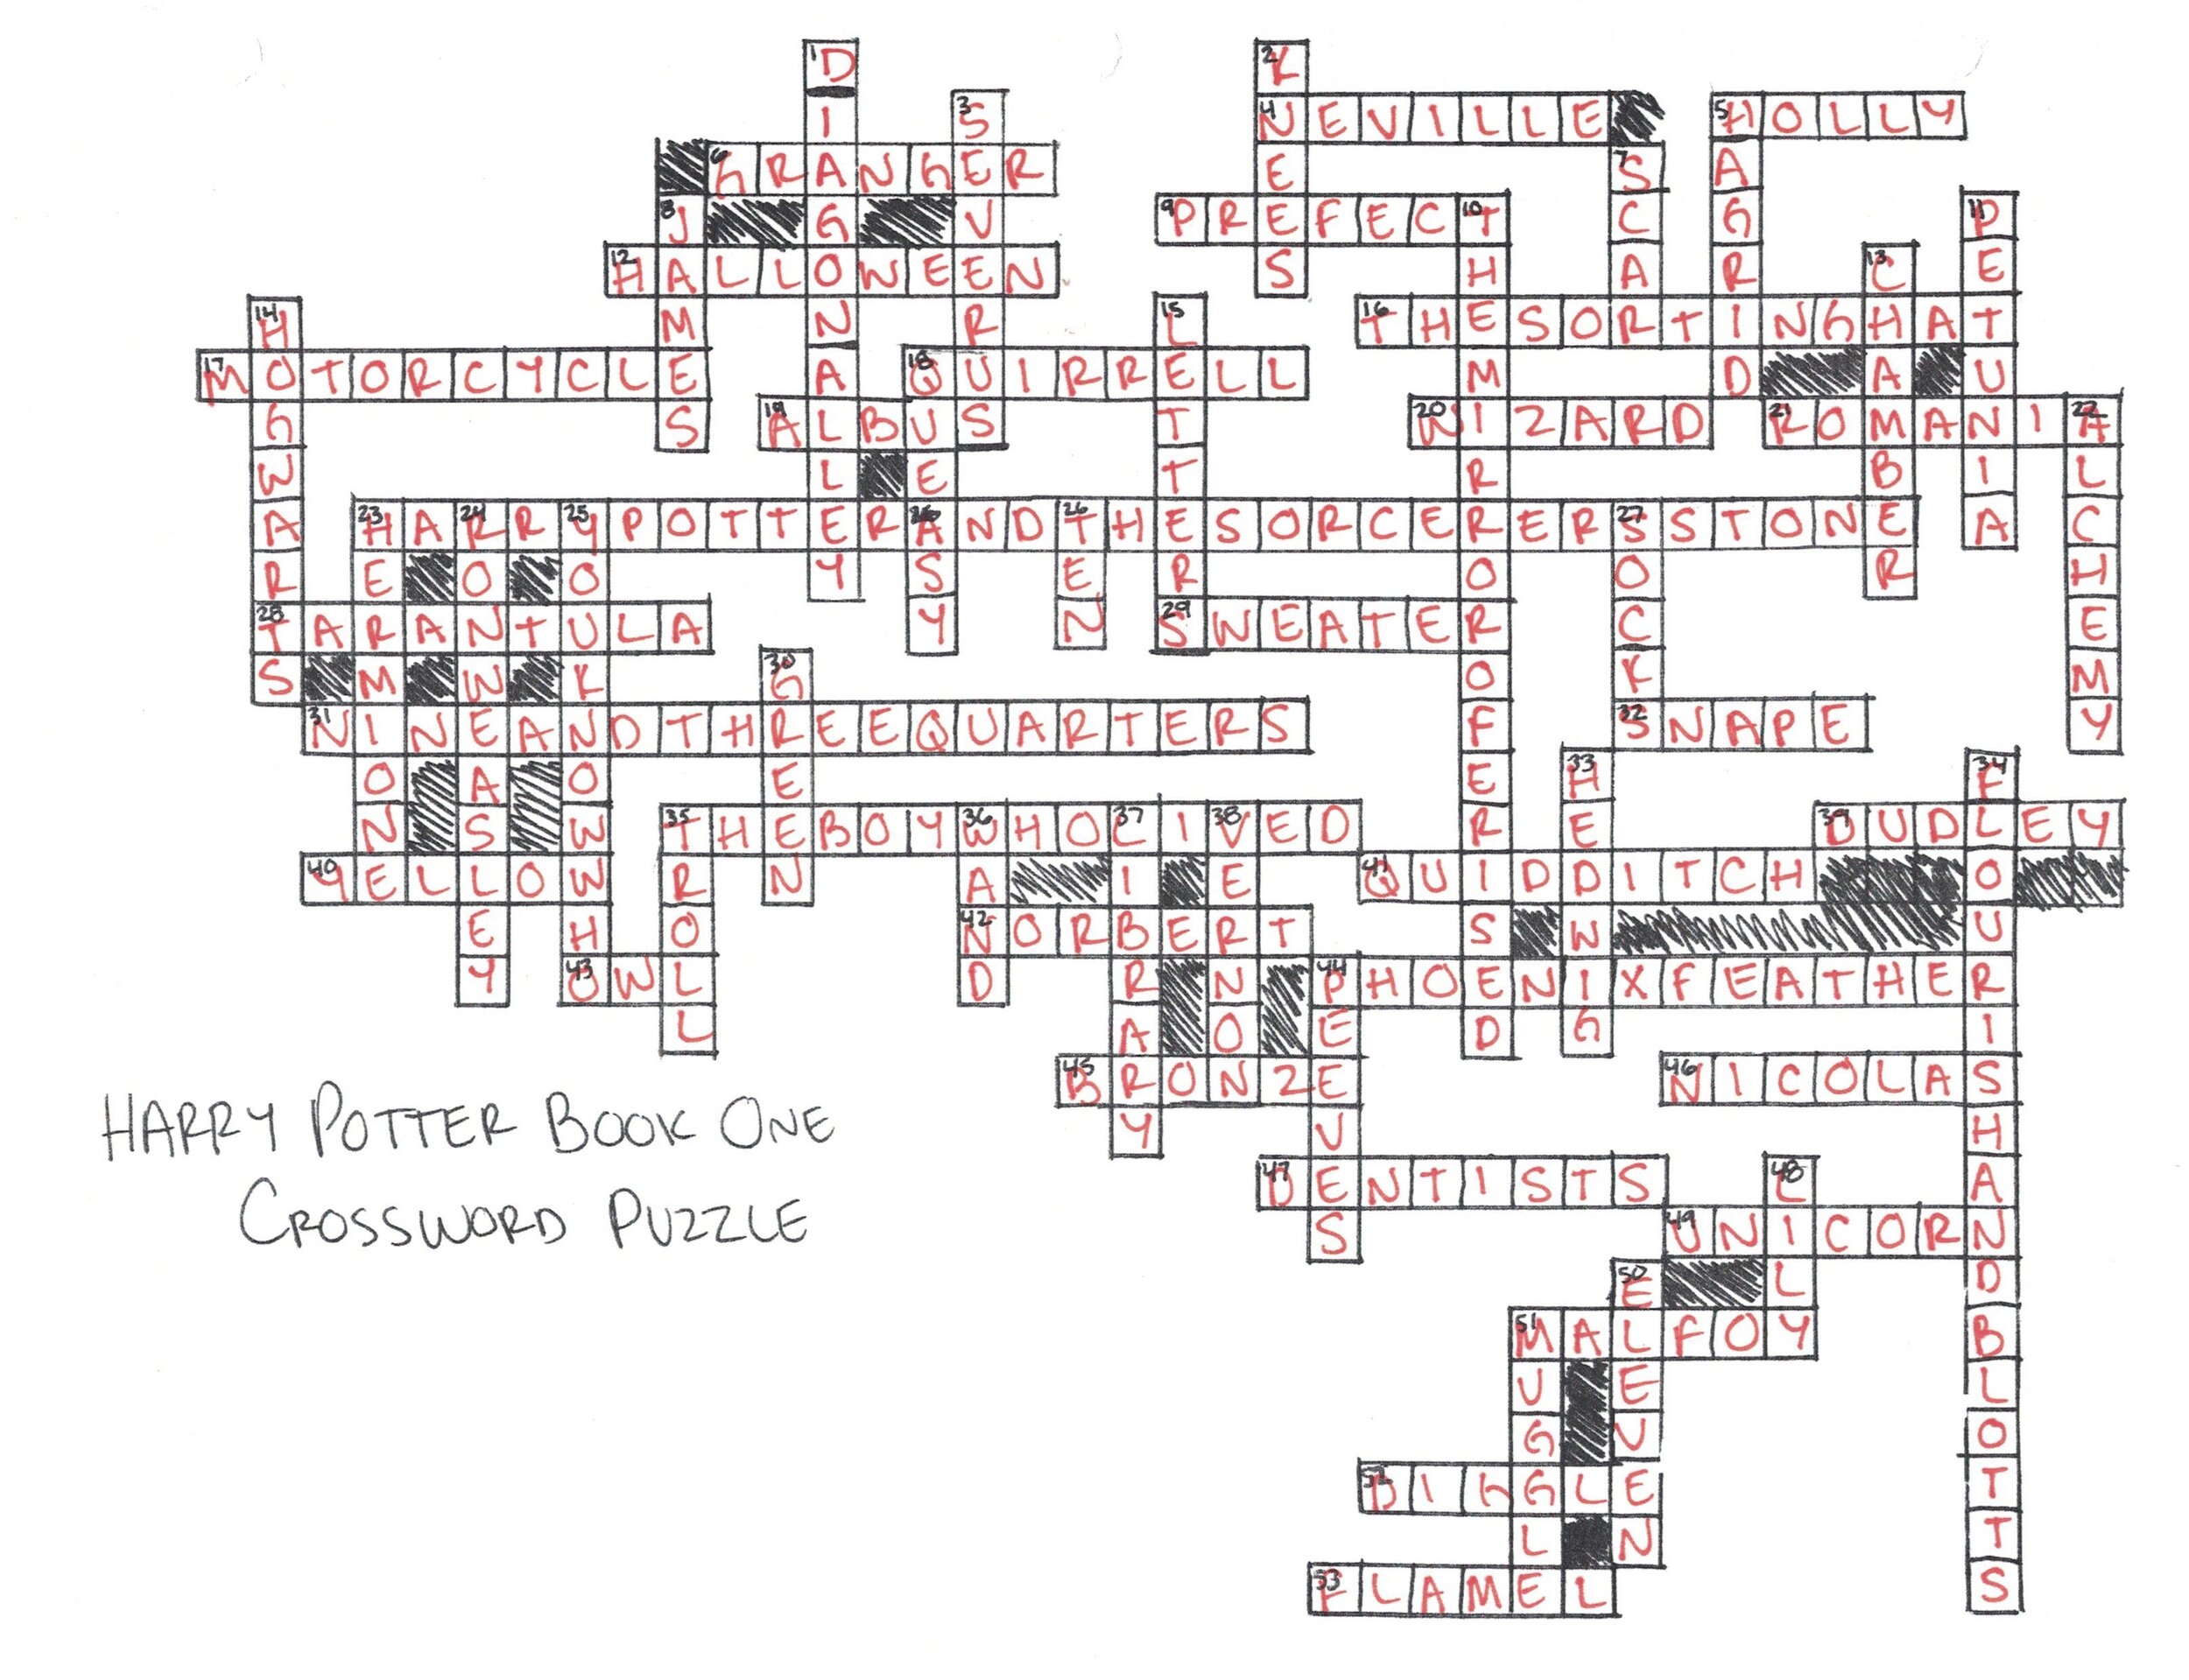 1 DIAGONALLEY
2 KNEES
3 SEVERUS
4 NEVILLE
5 HOLLY
5 HAGRID
6 GRANGER
7 SCAR
8 JAMES
9 PREFECT
10 THEMIRROROFERISED
11 PETUNIA
12 HALLOWEEN
13 CHAMBER
14 HOGWARTS
15 LETTERS
16 THESORTINGHAT
17 MOTORCYCLE
18 QUIRRELL
18 QUEASY
19 ALBUS
20 WIZARD
21 ROMANIA
22 ALCHEMY
23 HARRYPOTTERANDTHESORCERERSSTONE
23 HERMIONE
24 RONWEASLEY
25 YOUKNOWWHO
26 TEN
27 SOCKS
28 TARANTULA
29 SWEATER
30 GREEN
31 NINEANDTHREEQUARTERS
32 SNAPE
33 HEDWIG
34 FLOURISHANDBLOTTS
35 THEBOYWHOLIVED
35 TROLL
36 WAND
37 LIBRARY
38 VERNON
39 DUDLEY
40 YELLOW
41 QUIDDITCH
42 NORBERT
43 OWL
44 PHOENIXFEATHER
44 PEEVES
45 BRONZE
46 NICOLAS
47 DENTISTS
48 LILY
49 UNICORN
50 ELEVEN
51 MALFOY
51 MUGGLE
52 DIGGLE
53 FLAMEL
HARRY POTTER BOOK ONE
CROSSWORD PUZZLE